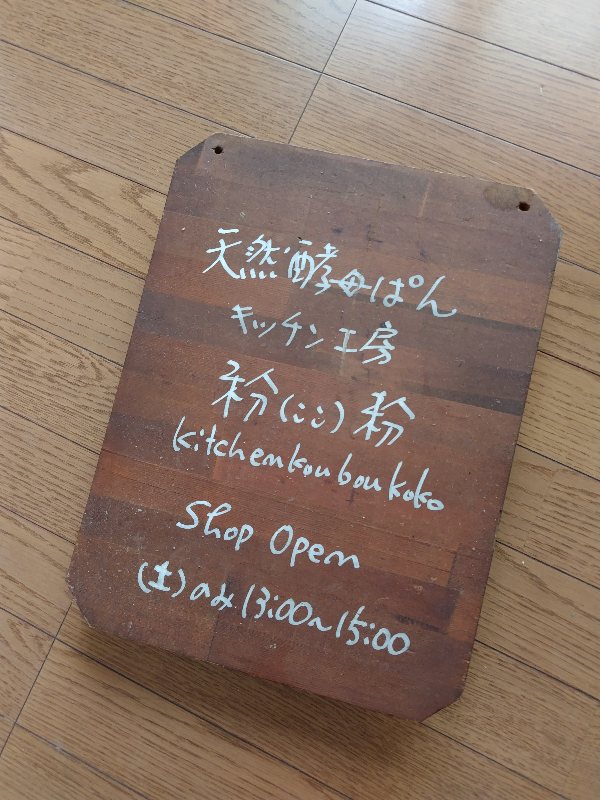 天然酵母ぱん
キッチン工房
粉(ここ)粉
kitchenkouboukoko
Shop Open
(土)のみ13:00~15:00